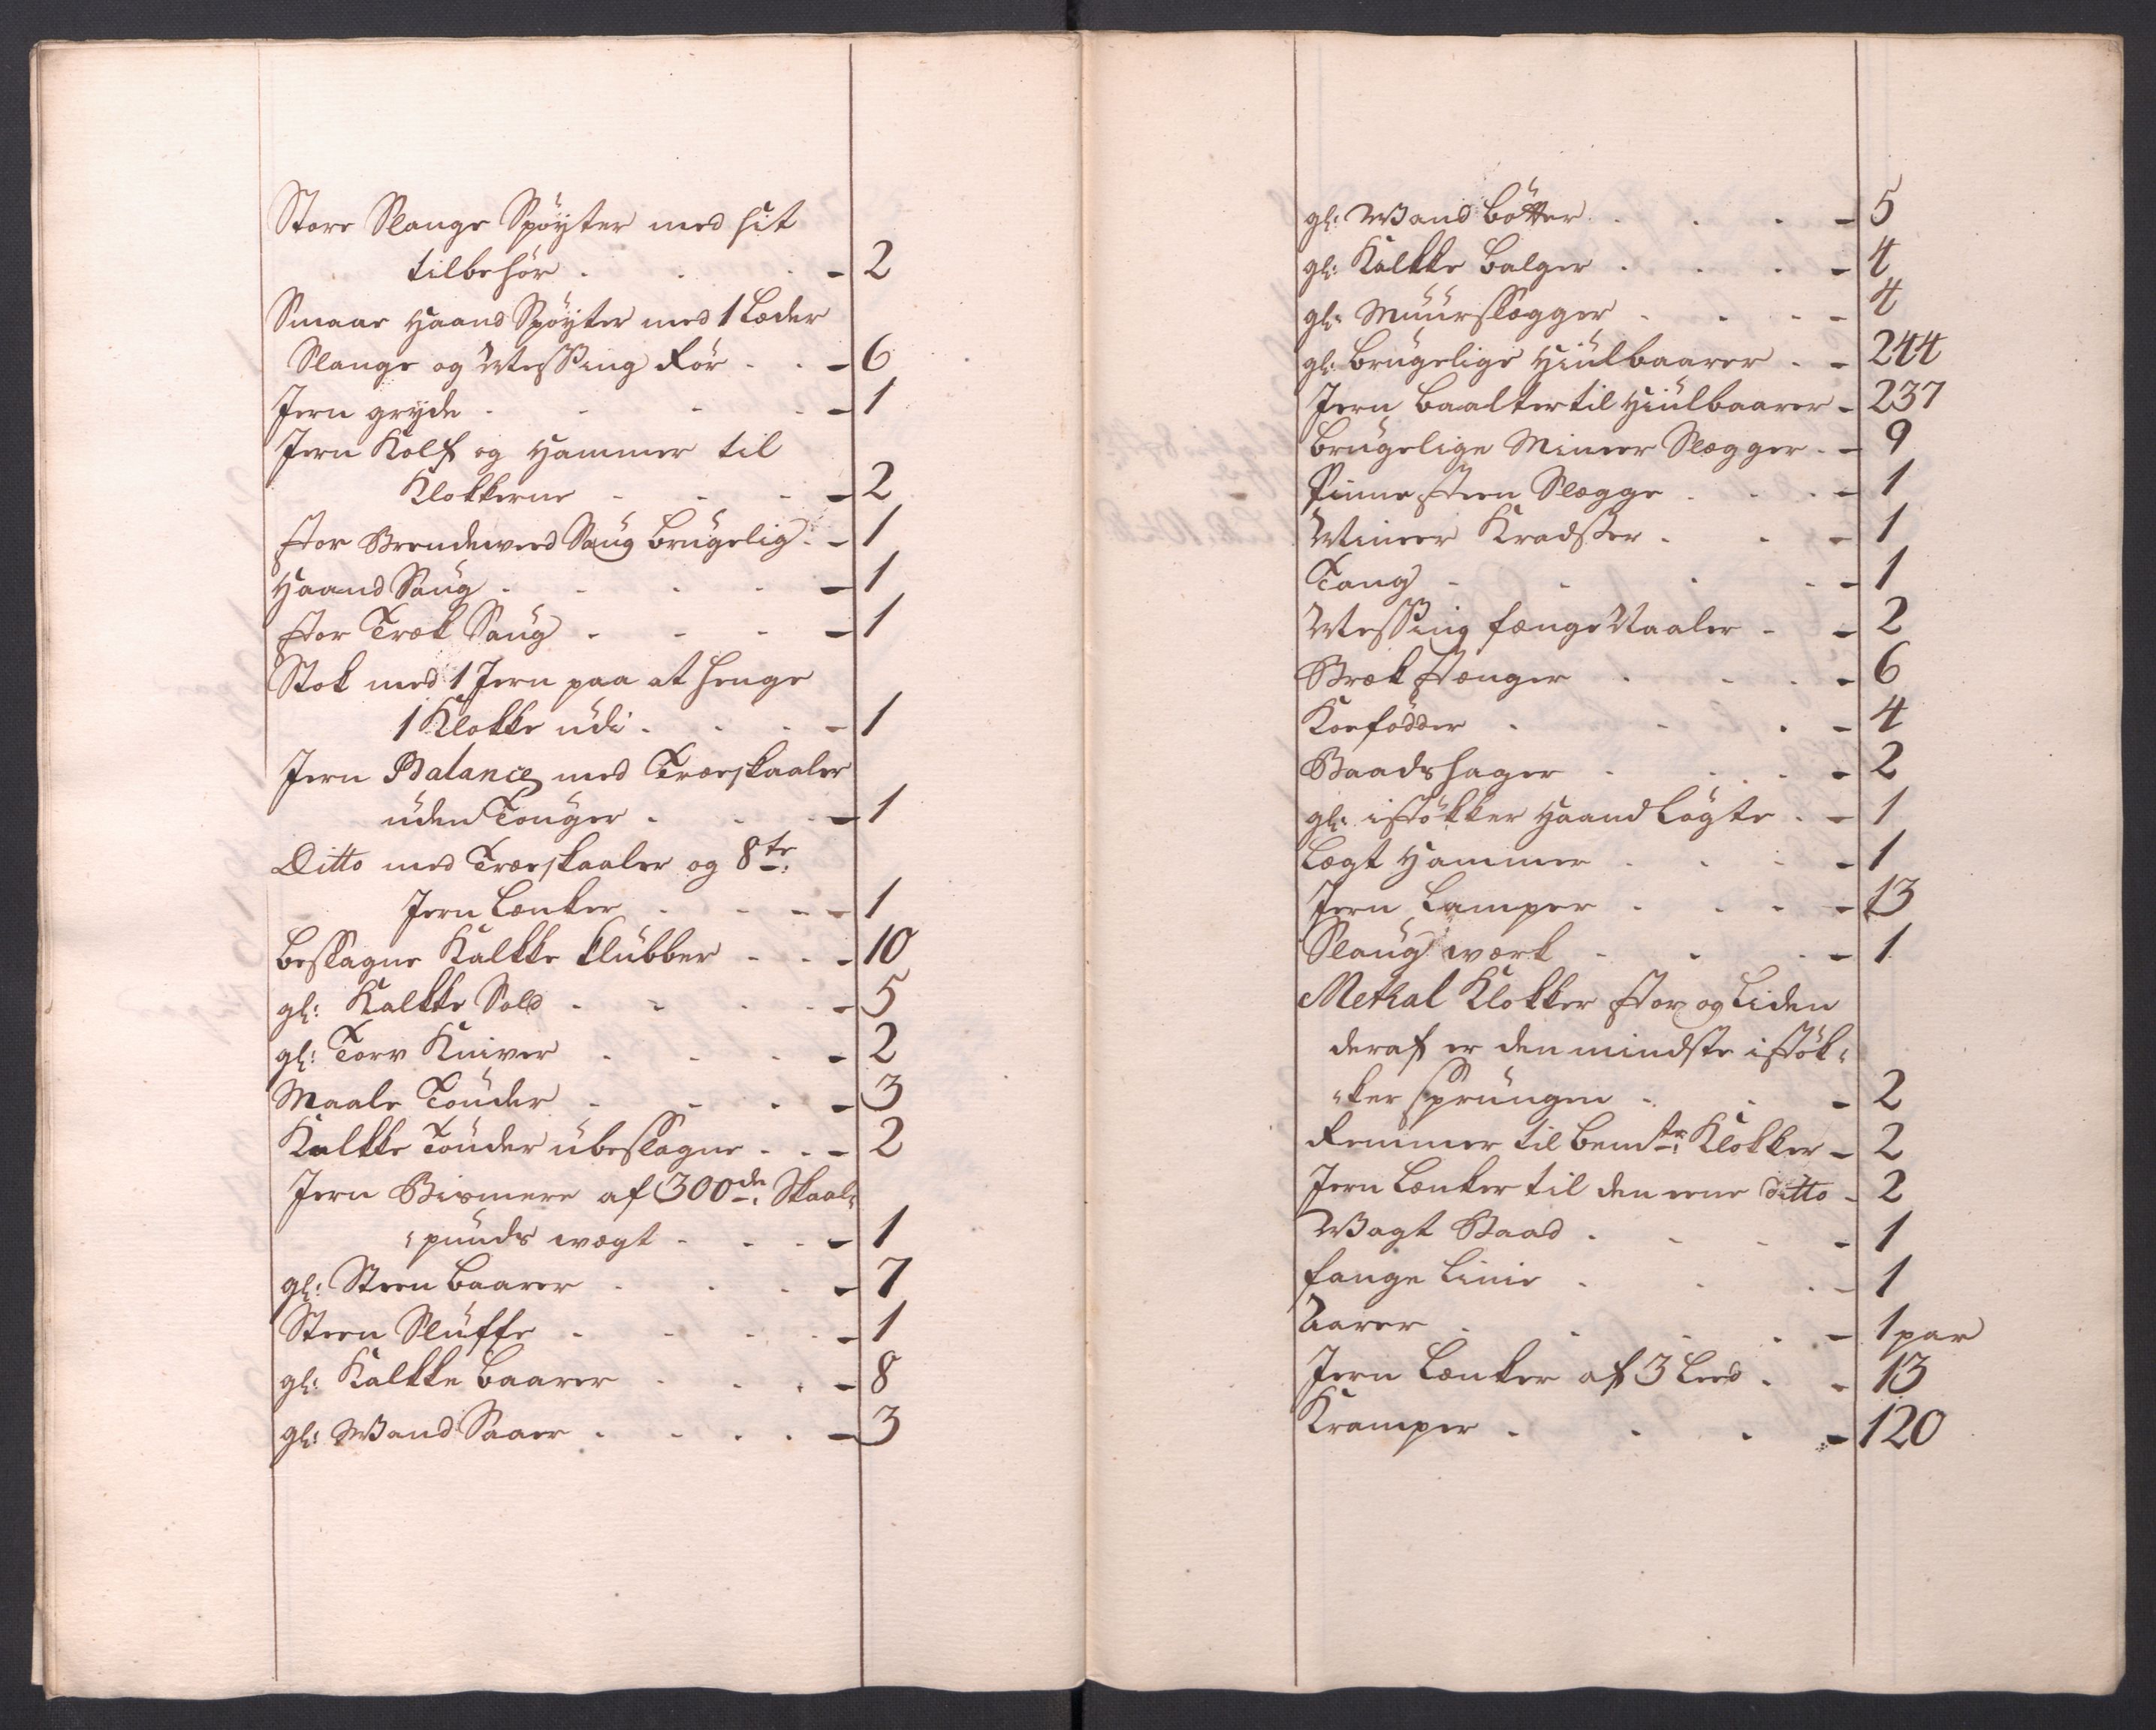 Store Slange Spøyter med sit
tilbehør . . . - 2
Smaae Haand Spøyter med 1 Læder
Slange og Messing Rör . . - 6
Jern gryde . . . . - 1
Jern Kolf og Hammer til
Klokkerne . . . - 2
stor Brendeveed Saug brugelig . - 1
Haand Saug . . . . - 1
stor Træk Saug . . . - 1
Stok med 1 Jern paa at henge
1 Klokke udi . . . - 1
Jern Balance med Træeskaaler
uden Touger . . . - 1
Ditto med Træeskaaler og 8te
Jern Lænker . . . - 1
beslagne Kalkke klubber . . - 10
gl: Kalkke Sold . . . - 5
gl: Torv Kniver . . . - 2
Maale Tönder . . . - 3
Kalkke Tönder ubeslagne . . - 2
Jern Bismere af 300de Skaal-
punds vægt . . . - 1
gl: Steen baarer . . . - 7
Steen Sluffe . . . . - 1
gl: Kalkke baarer . . . - 8
gl: Wand Saaer . . . . - 3
gl: Wand bötter . . . - 5
gl: Kalkke balger . . . - 4
gl: Muurslægger . . . - 4
gl: brugelige Hiulbaarer . - 244
Jern baalter til Hiulbaarer - 237
brugelige Mineer Slægger . - 9
Pinne steen Slægge . . . - 1
Mineer Kradser . . . - 1
Tang . . . . - 1
Messing fænge Naaler . - 2
Bræk stænger . . . - 6
Koefödder . . . - 4
Baadshager . . . - 2
gl: istökker Haand Lögte . - 1
Lægt Hammer . . . - 1
Jern Lamper . . . - 13
Slaug værk . . . - 1
Methal Klokker stor og Liden
deraf er den mindste istök-
ker sprungen . . - 2
Remmer til bemte Klokker - 2
Jern Lænker til den eene Ditto - 2
Wagt Baad . . . - 1
fange Linie . . . - 1
Aarer . . . . - 1 par
Jern Lænker af 3 Leed . - 13
Kramper . . . - 120